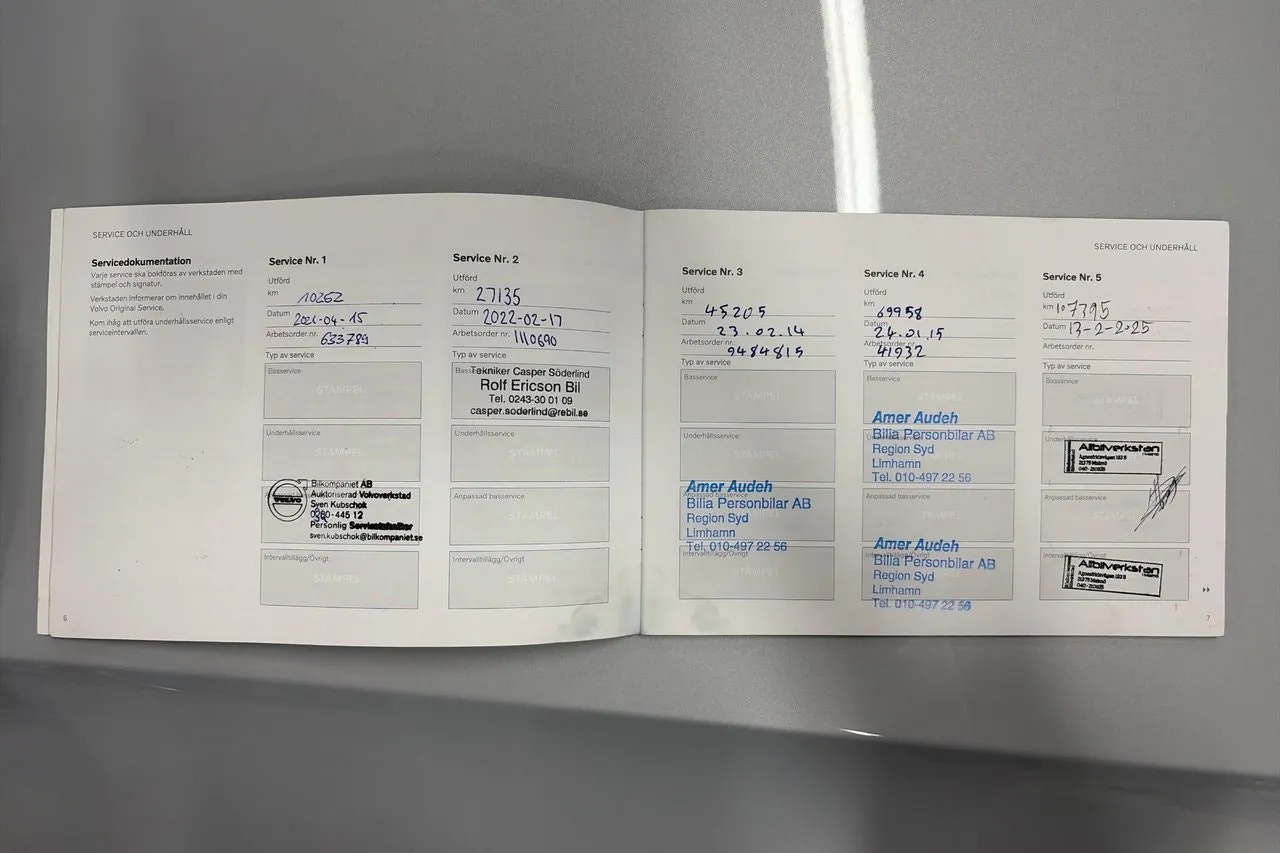 SERVICE OCH UNDERHÅLL
Servicedokumentation
Varje service ska bokföras av verkstaden med
stämpel och signatur.
Verkstaden informerar om innehållet i din
Volvo Original Service.
Kom ihåg att utföra underhållsservice enligt
serviceintervallen.
Service Nr. 1
Utförd
km 10262
Datum 2021-04-15
Arbetsorder nr. 633789
Typ av service
Basservice
STÄMPEL
Underhållsservice
STÄMPEL
VOLVO
Bilkompaniet AB
Auktoriserad Volvoverkstad
Sven Kubschok
-445 12
Personlig Servicetekniker
sven.kubschok@bilkompaniet.se
Intervalltillägg/Övrigt
STÄMPEL
6
Service Nr. 2
Utförd
km 27135
Datum 2022-02-17
Arbetsorder nr. 1110690
Typ av service
Tekniker Casper Söderlind
Rolf Ericson Bil
Tel. 0243-30 01 09
casper.soderlind@rebil.se
Underhållsservice
STÄMPEL
Anpassad basservice
STÄMPEL
Intervalltillägg/Övrigt
STÄMPEL
SERVICE OCH UNDERHÅLL
Service Nr. 3
Utförd
km 45205
Datum 23.02.14
Arbetsorder nr. 9484815
Typ av service
Basservice
STÄMPEL
Underhållsservice
STÄMPEL
Amer Audeh
Anpassad basservice
Bilia Personbilar AB
Region Syd
Limhamn
Tel. 010-497 22 56
Intervalltillägg/Övrigt
STÄMPEL
Service Nr. 4
Utförd
km 69958
Datum 24.01.15
Arbetsorder nr. 41932
Typ av service
Basservice
STÄMPEL
Amer Audeh
Bilia Personbilar AB
Region Syd
Limhamn
Tel. 010-497 22 56
Anpassad basservice
STÄMPEL
Amer Audeh
Bilia Personbilar AB
Region Syd
Limhamn
Tel. 010-497 22 56
Service Nr. 5
Utförd
km 107395
Datum 13-2-2025
Arbetsorder nr.
Typ av service
Basservice
STÄMPEL
Allbilverkstan
Anpassad basservice
STÄMPEL
Intervalltillägg/Övrigt
Allbilverkstan
7